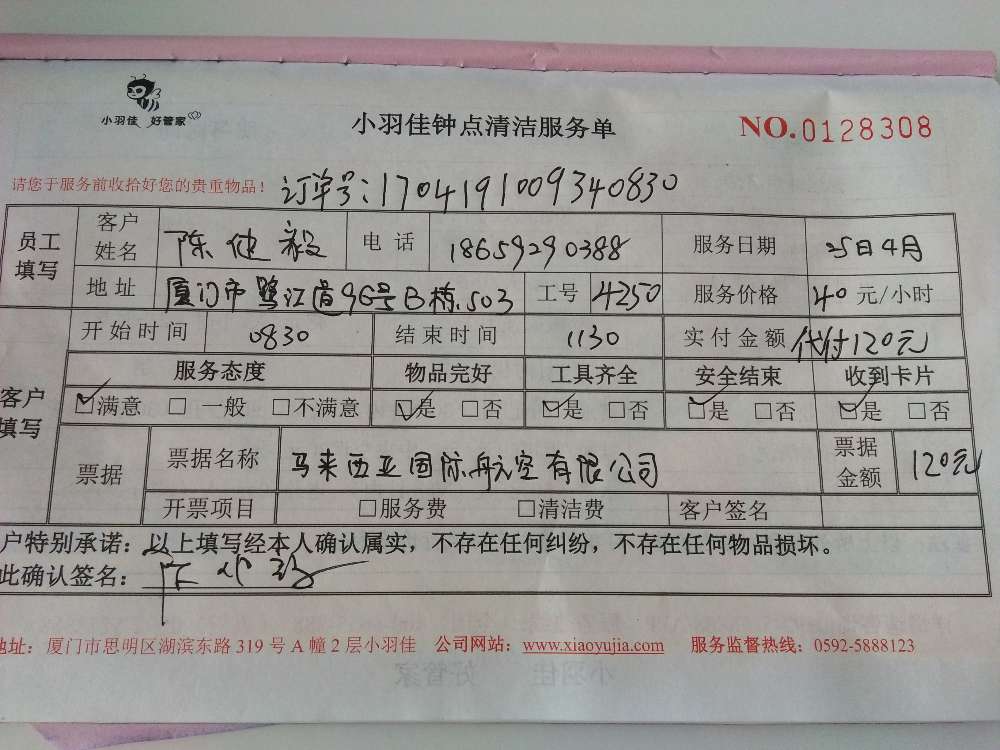 小羽佳 好管家
小羽佳钟点清洁服务单
NO.0128308
请您于服务前收拾好您的贵重物品！
订单号：1704191009340830
员工填写 客户姓名 陈健毅 电话 18659290388 服务日期 25日4月
地址 厦门市鹭江道96号B栋503 工号 4250 服务价格 40元/小时
开始时间 0830 结束时间 1130 实付金额 代付120元
客户填写
服务态度 物品完好 工具齐全 安全结束 收到卡片
☑满意 □一般 □不满意 ☑是 □否 ☑是 □否 ☑是 □否 ☑是 □否
票据 票据名称 马来西亚国际航空有限公司 票据金额 120元
开票项目 □服务费 □清洁费 客户签名
户特别承诺：以上填写经本人确认属实，不存在任何纠纷，不存在任何物品损坏。
此确认签名：
地址：厦门市思明区湖滨东路319号A幢2层小羽佳 公司网站：www.xiaoyujia.com 服务监督热线：0592-5888123